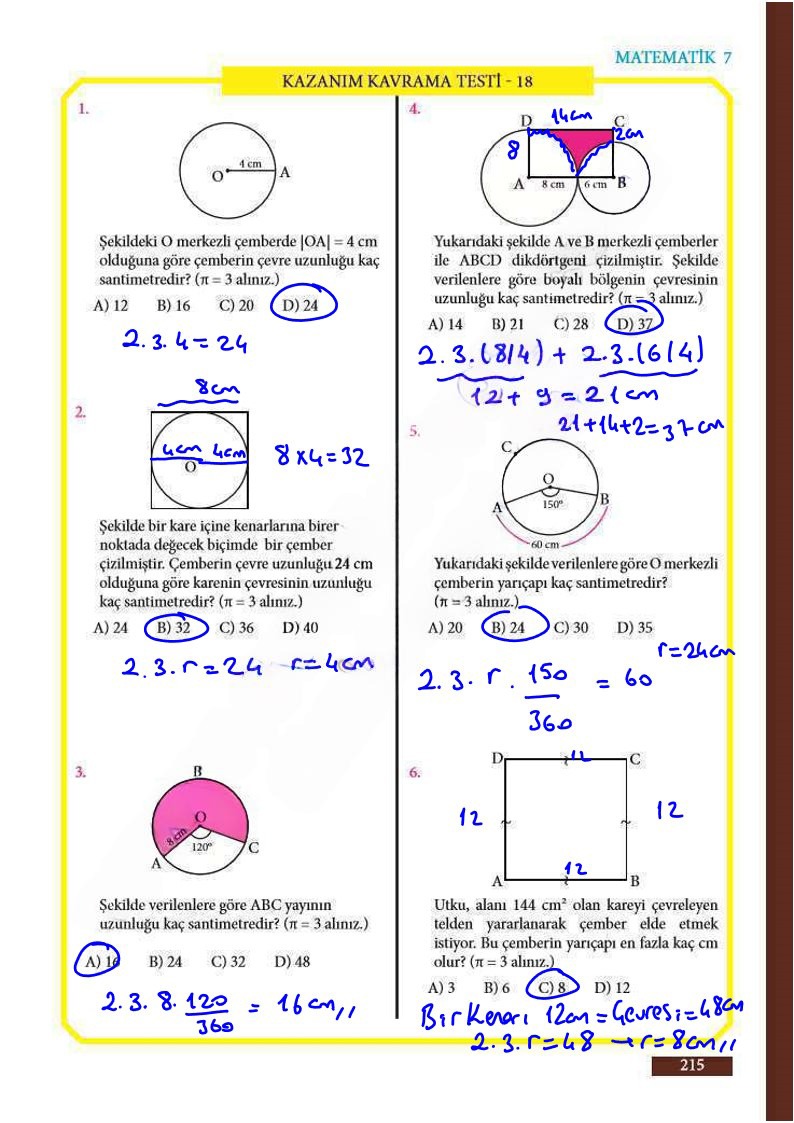 MATEMATİK 7
KAZANIM KAVRAMA TESTİ - 18
1.
4 cm
O
A
Şekildeki O merkezli çemberde |OA| = 4 cm
olduğuna göre çemberin çevre uzunluğu kaç
santimetredir? (π = 3 alınız.)
A) 12 B) 16 C) 20 D) 24
2.3.4=24
8cm
2.
4cm 4cm
O
8x4=32
Şekilde bir kare içine kenarlarına birer
noktada değecek biçimde bir çember
çizilmiştir. Çemberin çevre uzunluğu 24 cm
olduğuna göre karenin çevresinin uzunluğu
kaç santimetredir? (π = 3 alınız.)
A) 24 B) 32 C) 36 D) 40
2.3.r=24 r=4cm
3.
B
O
8 cm
120°
A
C
Şekilde verilenlere göre ABC yayının
uzunluğu kaç santimetredir? (π = 3 alınız.)
A) 16 B) 24 C) 32 D) 48
2.3.8.120/360 = 16cm,,
4.
14cm
D C
2cm
8
A 8 cm 6 cm B
Yukarıdaki şekilde A ve B merkezli çemberler
ile ABCD dikdörtgeni çizilmiştir. Şekilde
verilenlere göre boyalı bölgenin çevresinin
uzunluğu kaç santimetredir? (π = 3 alınız.)
A) 14 B) 21 C) 28 D) 37
2.3.(8/4) + 2.3.(6/4)
12+ 9 = 21cm
21+14+2=37cm
5.
C
O
150°
A
B
60 cm
Yukarıdaki şekilde verilenlere göre O merkezli
çemberin yarıçapı kaç santimetredir?
(π = 3 alınız.)
A) 20 B) 24 C) 30 D) 35
r=24cm
2.3.r.150/360 = 60
6.
D 12 C
12 12
12
A B
Utku, alanı 144 cm² olan kareyi çevreleyen
telden yararlanarak çember elde etmek
istiyor. Bu çemberin yarıçapı en fazla kaç cm
olur? (π = 3 alınız.)
A) 3 B) 6 C) 8 D) 12
Bir Kenarı 12cm = Çevresi=48cm
2.3.r=48 → r=8cm,,
215